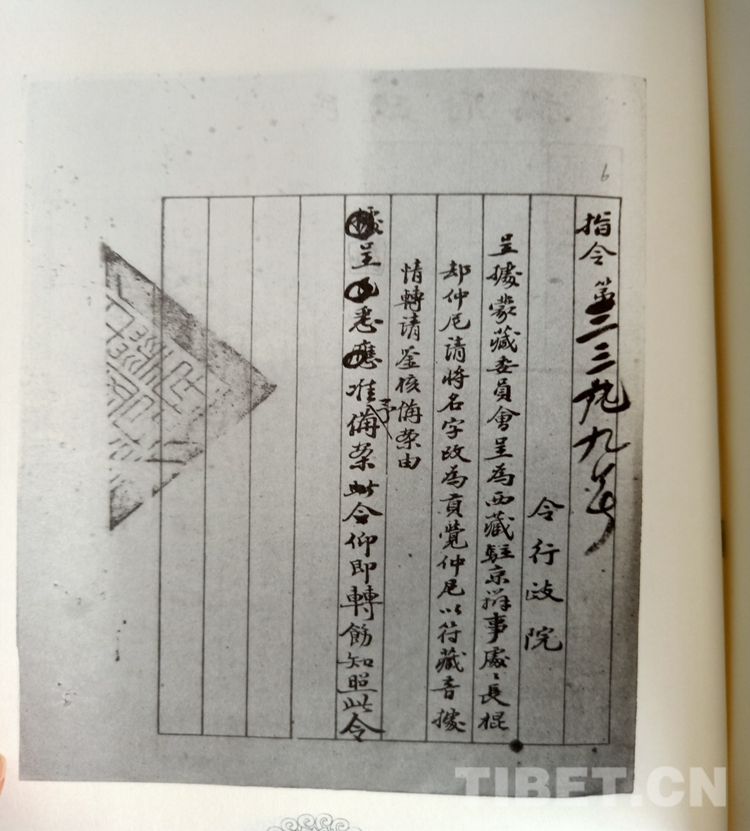 6
指令第二三九九号
令行政院
呈據蒙藏委員會呈為西藏駐京辦事處〻長棍
却仲尼请將名字改為貢覺仲尼以符藏音據
情轉請鉴核備案由
據呈已悉應准予備案此令仰即轉飭知照此令
TIBET.CN